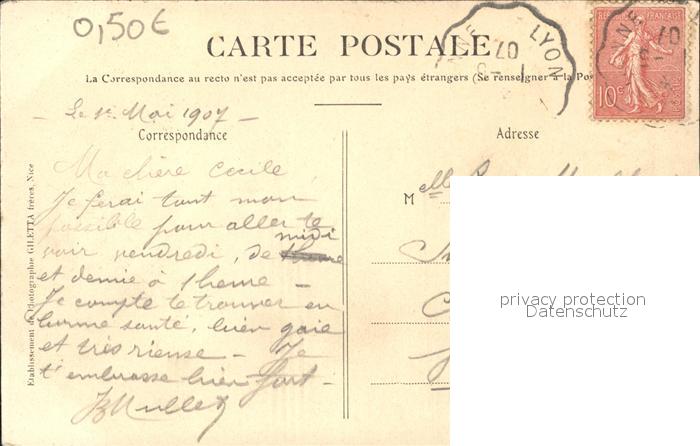 0,50€
CARTE POSTALE
La Correspondance au recto n'est pas acceptée par tous les pays étrangers (Se renseigner à la Pos
LYON
07
10c
- Le 1er Mai 1907 -
Correspondance
Adresse
Ma chère Cécile,
Je ferai tout mon
possible pour aller te
voir vendredi, de midi
et demie à 1 heure -
Je compte te trouver en
bonne santé, bien gaie
et très rieuse - Je
t'embrasse bien fort -
Melle
privacy protection
Datenschutz
Etablissement de Photographie GILETTA frères, Nice